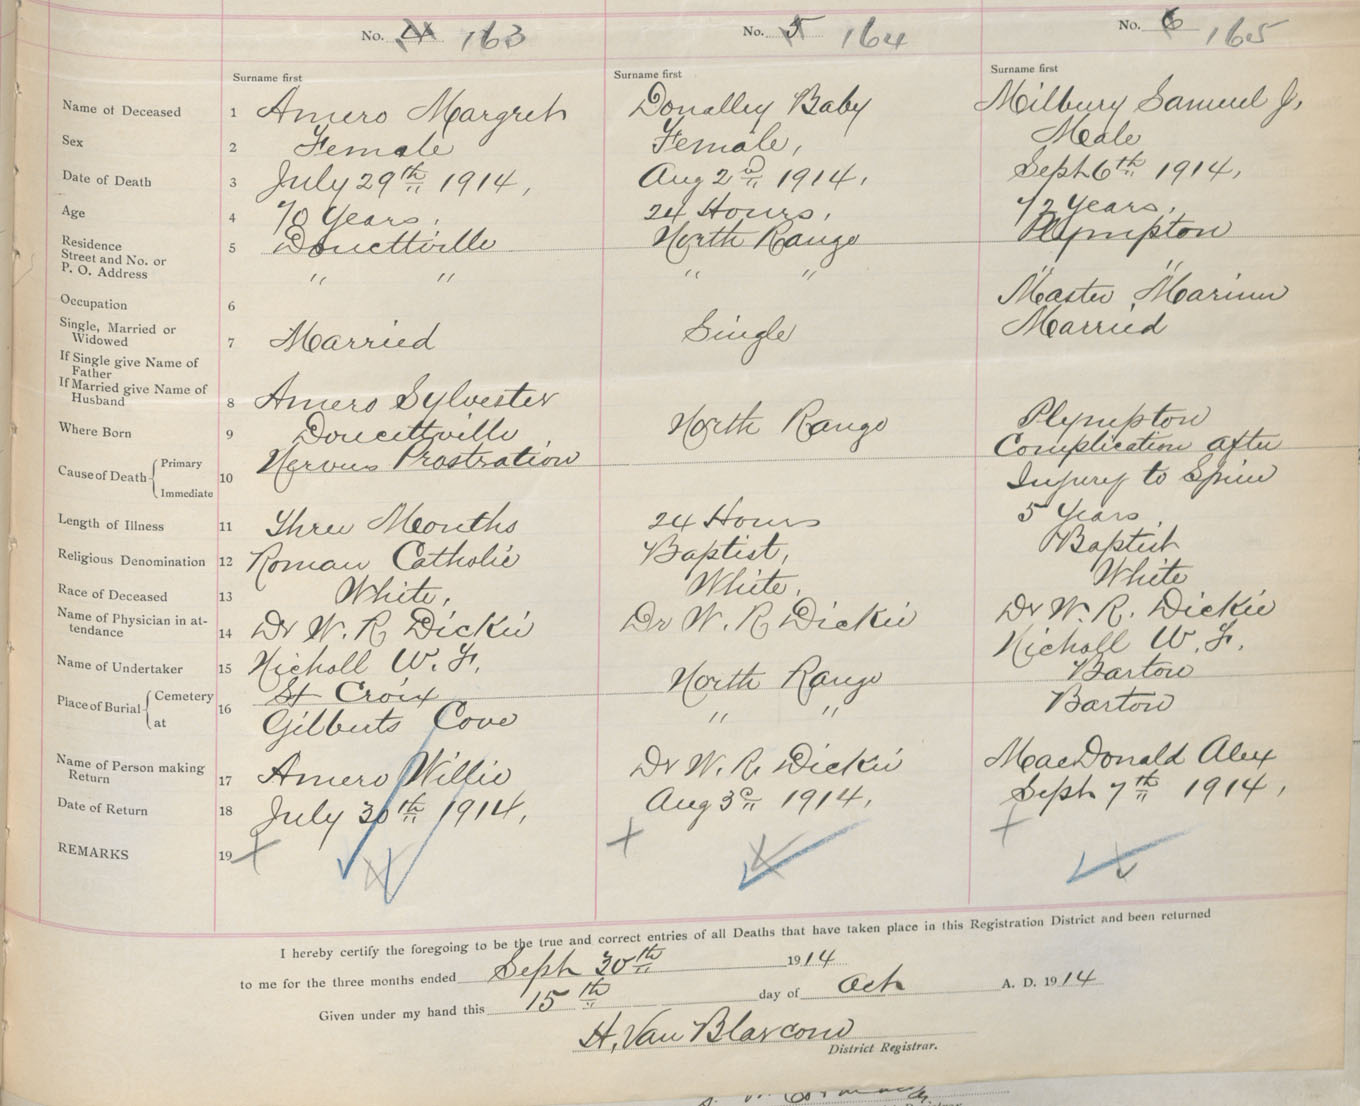 No. 4 163 No. 5 164 No. 6 165
Surname first Surname first Surname first
Name of Deceased 1 Amero Margret Donalley Baby Milbury Samuel J.
Sex 2 Female Female, Male
Date of Death 3 July 29th 1914, Aug 2D 1914, Sept 6th 1914,
Age 4 70 Years, 24 Hours, 72 Years,
Residence Street and No. or P. O. Address 5 Doucettville North Range Plympton
" " " " " "
Occupation 6 Master Mariner
Single, Married or Widowed 7 Married Single Married
If Single give Name of Father
If Married give Name of Husband 8 Amero Sylvester
Where Born 9 Doucettville North Range Plympton
Cause of Death Primary Immediate 10 Nervus Prostration Complication after
Injury to Spine
Length of Illness 11 Three Months 24 Hours 5 Years
Religious Denomination 12 Roman Catholic Baptist, Baptist
Race of Deceased 13 White, White, White
Name of Physician in attendance 14 Dr W. R Dickie Dr W. R Dickie Dr W. R. Dickie
Name of Undertaker 15 Nicholl W. F. Nicholl W. F.
Place of Burial Cemetery at 16 St Croix North Range Barton
Gilberts Cove " " Barton
Name of Person making Return 17 Amero Willie Dr W. R. Dickie MacDonald Alex
Date of Return 18 July 30th 1914, Aug 3D 1914, Sept 7th 1914,
REMARKS 19
I hereby certify the foregoing to be the true and correct entries of all Deaths that have taken place in this Registration District and been returned
to me for the three months ended Sept 30th 1914
Given under my hand this 15th day of Oct A. D. 1914
H. Van Blarcom
District Registrar.